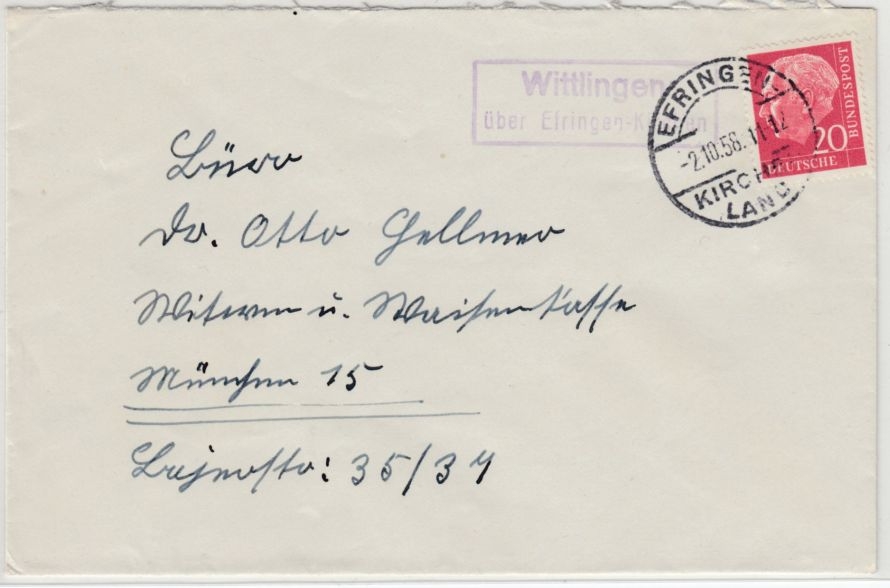 Wittlingen
über Efringen-Kirchen
EFRINGEN-
-2.10.58.11-12
KIRCHEN
LAND
20
DEUTSCHE
BUNDESPOST
Büro
Dr. Otto
Witwen u. Waisenkasse
München 15
Bayerstr: 35/37